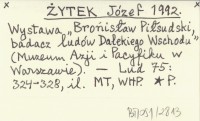 ŻYTEK Józef 1992.
Wystawa „Bronisław Piłsudski,
badacz ludów Dalekiego Wschodu"
(Muzeum Azji i Pacyfiku w
Warszawie). — Lud 75:
324-328, il. MT, WHP. *P.